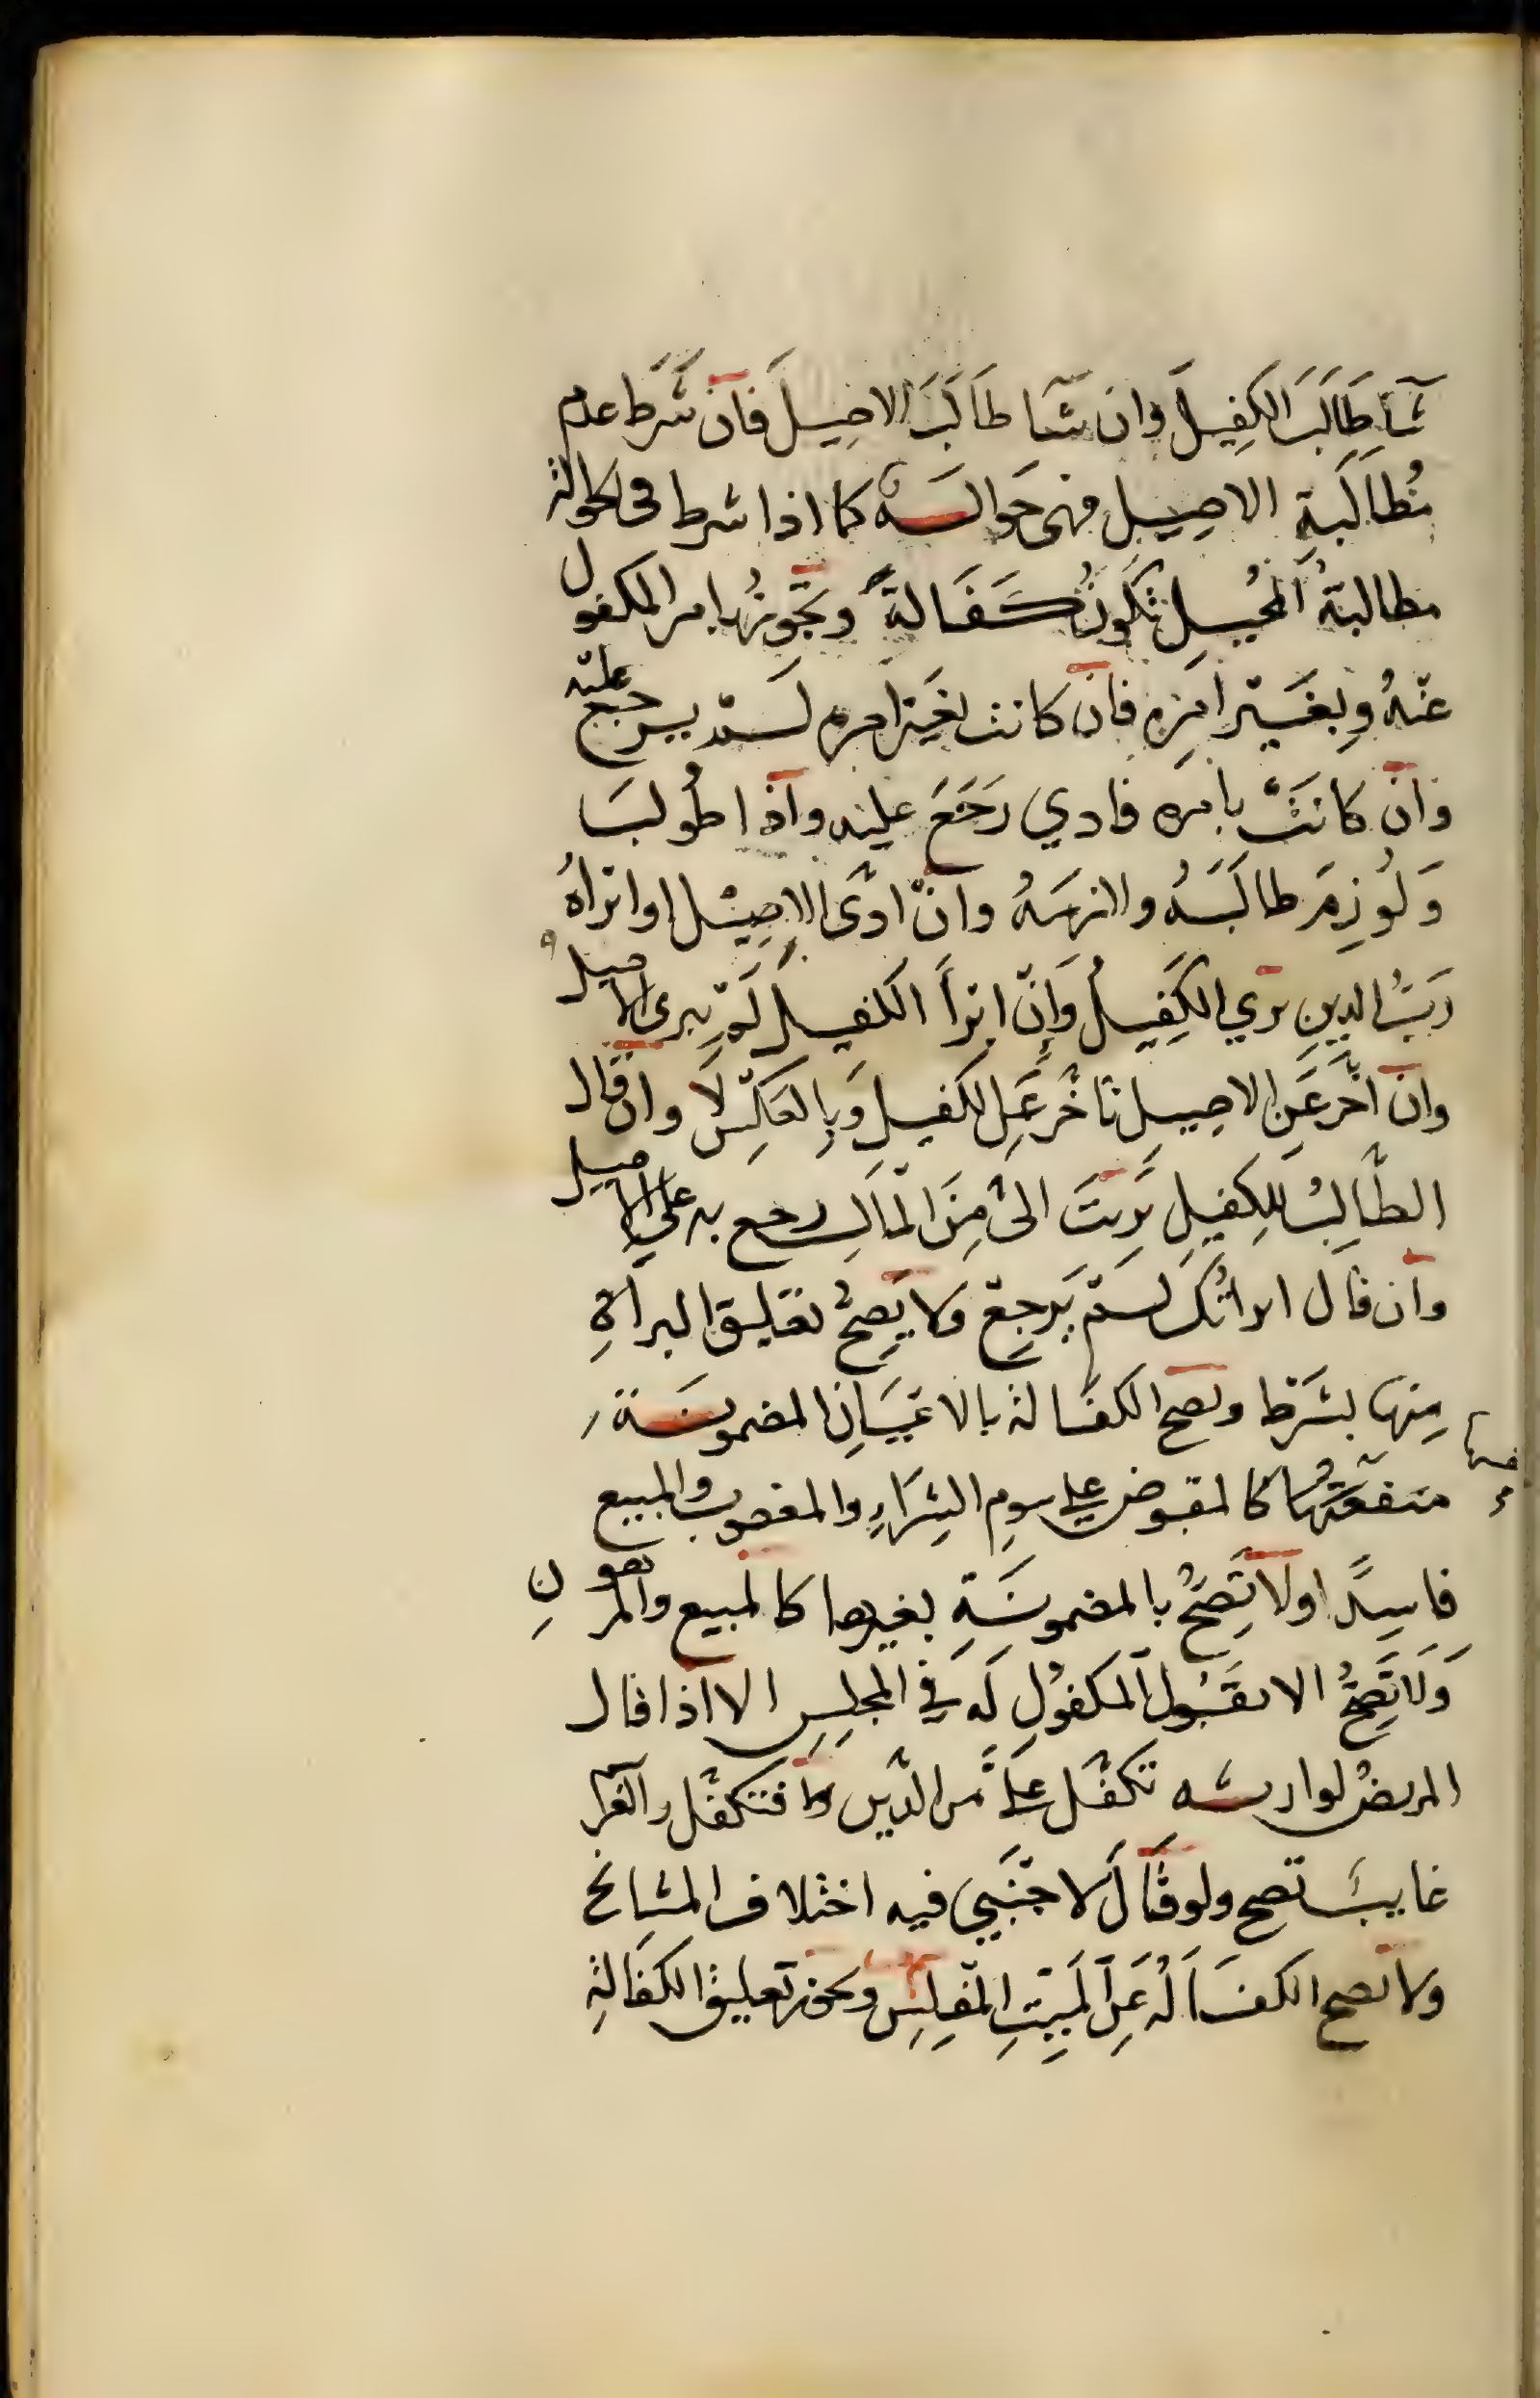 شَآ طَالَبَ الكَفِيلَ وان شَآ طَالَبَ الاصِيلَ فان شَرَطَ عدم
مُطَالَبَةِ الاصِيلِ فهى حَوالَة كما اذا شرط فى الحوالة
مطالبةُ المُحِيلِ تَكُونُ كَفَالةً وتَجُوزُ بامر المكفول
عَنْهُ وبِغَيْرِ اَمْرِهِ فان كانت بغَيْرِ امره لم يرجع عليْه
وان كانَتْ بامره فادي رَجَعَ عليه واذا طُولبَ
وَلُوزِمَ طالَبَهُ ولازمَهُ وانْ ادَّى الاصِيْل او ابْرَاهُ
رَبُّ الدين بَرِي الكَفِيلُ وَاِنْ ابْرَأَ الكفيلَ لَمْ يبرى الاصيلُ
وان اَخَّرَ عَنِ الاصِيلِ تَاَخَّرَ عَنِ الكفيلِ وَبِالعَكْسِ لَا وان قال
الطَّالِبُ للكفِيلِ بَرِيتَ الىَّ مِنَ الْمَالِ رجع به على الاصيل
وان قال ابراتُكَ لم يَرجِعْ ولا يَصِحُّ تعليق البراةِ
مِنها بشَرْط وتصح الكفالة بالاعْيَانِ المضمونَة
بنفسها كالمقبوض على سوم الشِّرَاءِ والمغصوب والمبيع
فاسِدًا ولا تَصِحُّ بالمضمونَةِ بغيرها كالمبيع والمرهونِ
وَلَا تَصِحُّ الا بقَبُولِ المكفُولِ لَه فِي المَجلِسِ الا اذا قال
المريضُ لوارثه تكَفَّل علىَّ من الدَّين فتكفَّل والغرما
غايبٌ تصح ولو قَالَ لاجْنَبِي فيه اختلاف المشايخ
ولا تصح الكفَالَةُ عَنِ المَيِّتِ المُفلِسِ ويجوز تعليق الكفالةِ